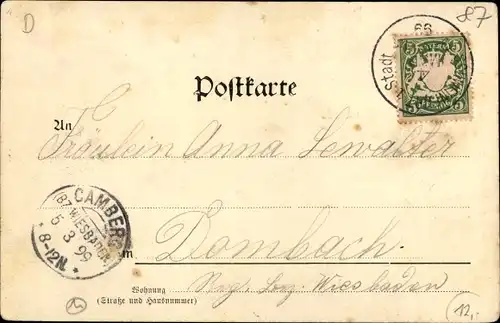 D
87
66
Stadt
BAYERN
5 5
PFENNIG
Postkarte
An
Fräulein Anna Lewalter
CAMBERG
(BZ. WIESBADEN)
5 3 99
8-12N.
in
Dombach.
Reg. Bez. Wiesbaden
Wohnung
(Straße und Hausnummer)
12,-